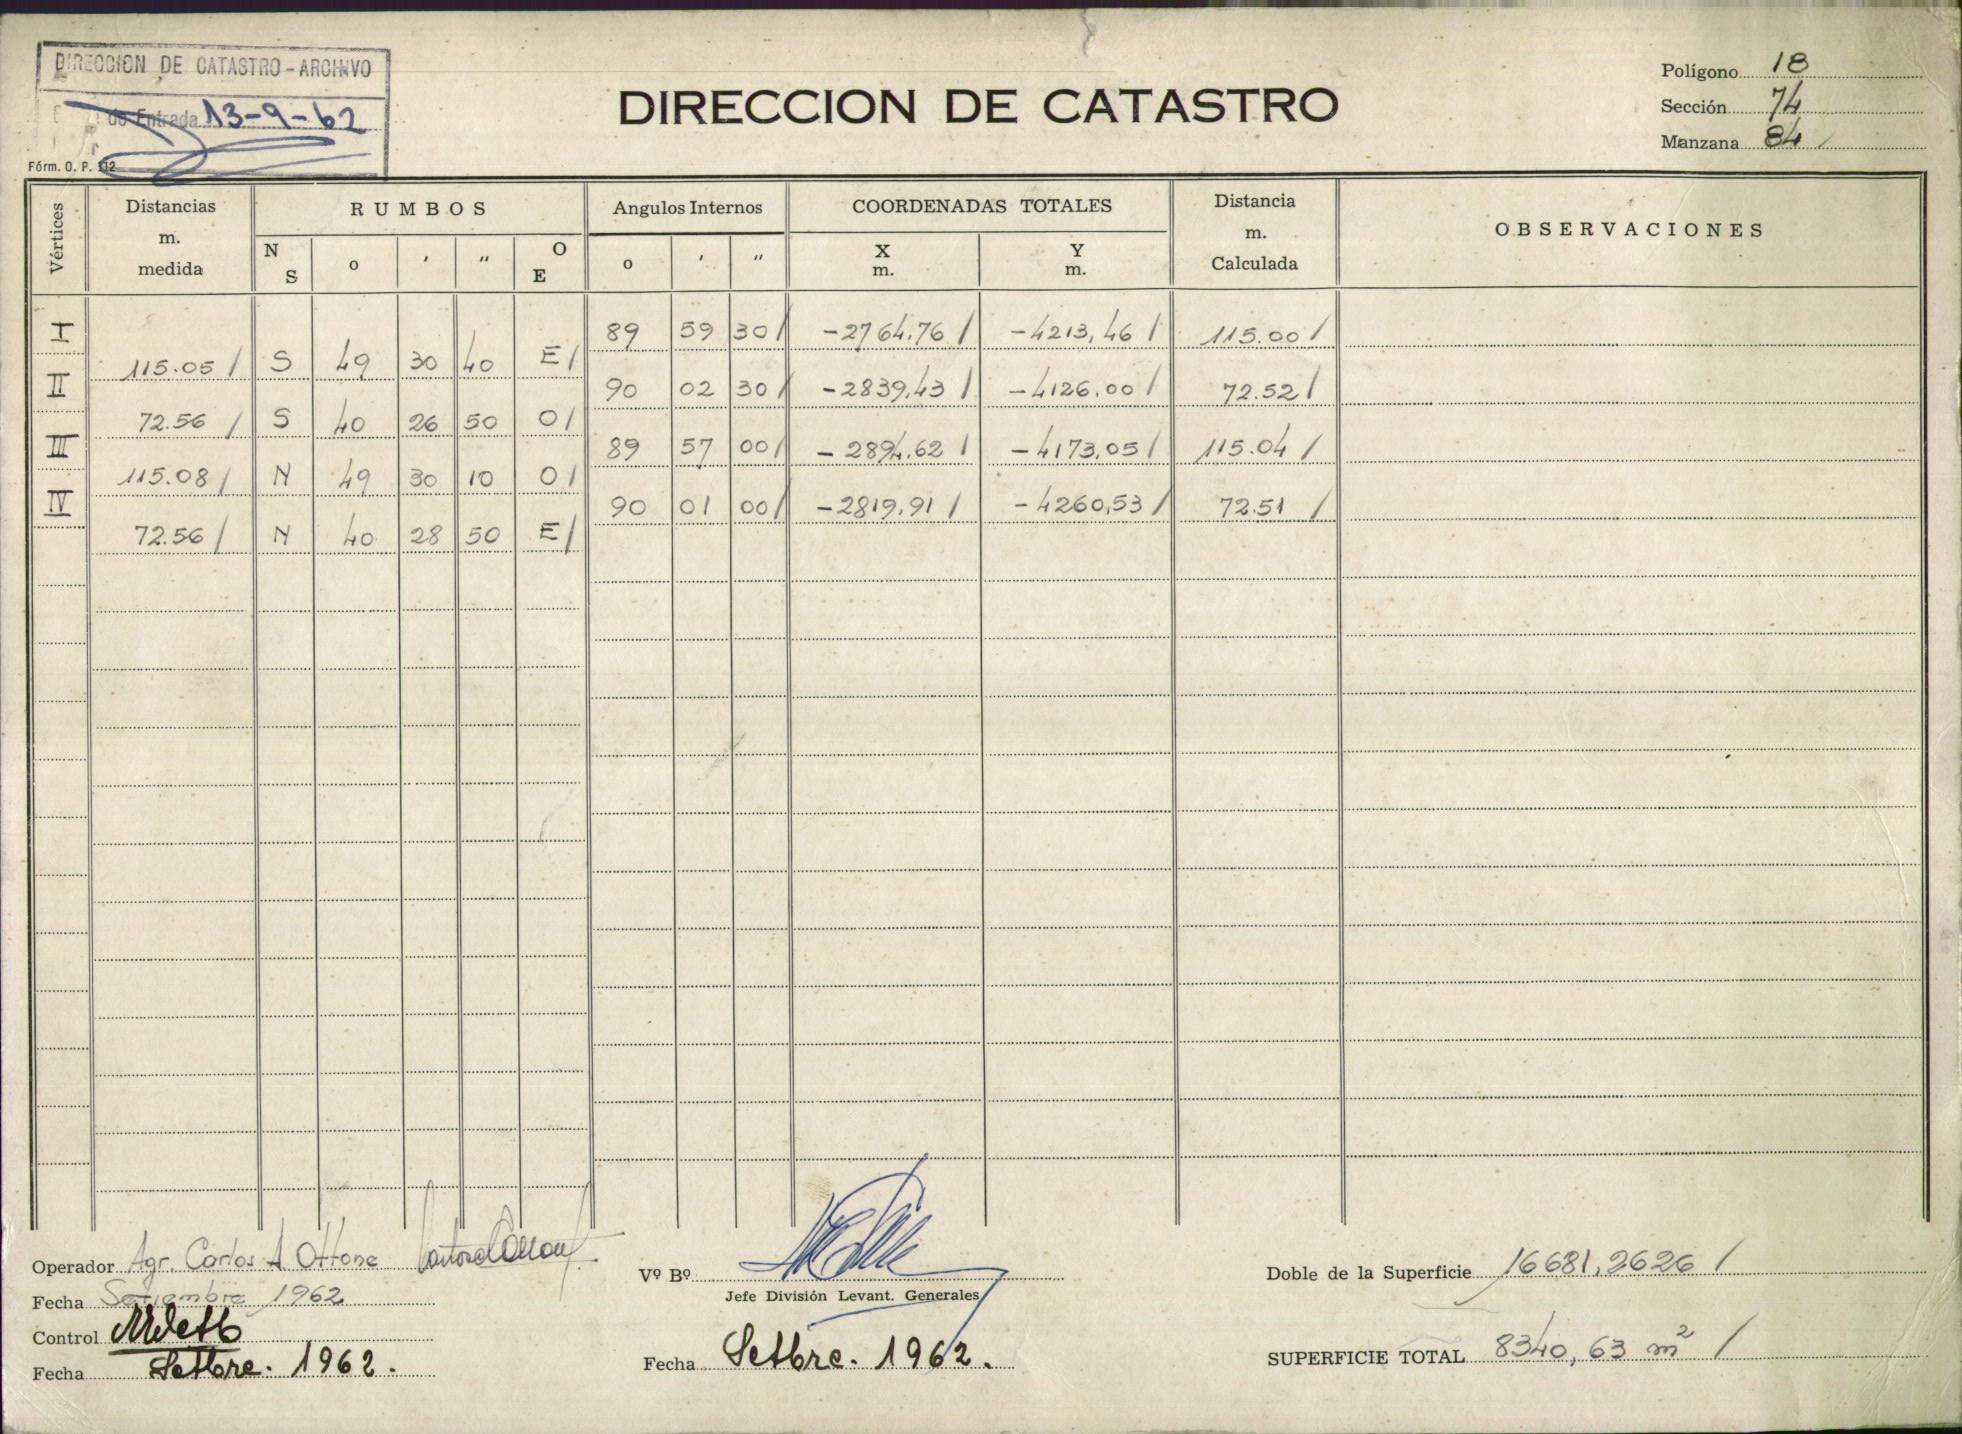 DIRECCION DE CATASTRO - ARCHIVO
de Entrada 13-9-62
Fórm. O. P. 112
DIRECCION DE CATASTRO
Polígono 18
Sección 74
Manzana 84
Vértices
Distancias m. medida
RUMBOS
N S o ′ ″ O E
Angulos Internos
o ′ ″
COORDENADAS TOTALES
X m. Y m.
Distancia m. Calculada
OBSERVACIONES
I 89 59 30 / -2764,76 / -4213,46 / 115.00 /
115.05 / S 49 30 40 E /
II 90 02 30 / -2839,43 / -4126.00 / 72.52 /
72.56 / S 40 26 50 O /
III 89 57 00 / -2894,62 / -4173,05 / 115.04 /
115.08 / N 49 30 10 O /
IV 90 01 00 / -2819,91 / -4260,53 / 72.51 /
72.56 / N 40 28 50 E /
Operador Agr. Carlos A Ottone
Fecha Setiembre 1962
Control
Fecha Setbre. 1962.
Vº Bº
Jefe División Levant. Generales
Fecha Setbre. 1962.
Doble de la Superficie 16681,2626 /
SUPERFICIE TOTAL 8340,63 m² /